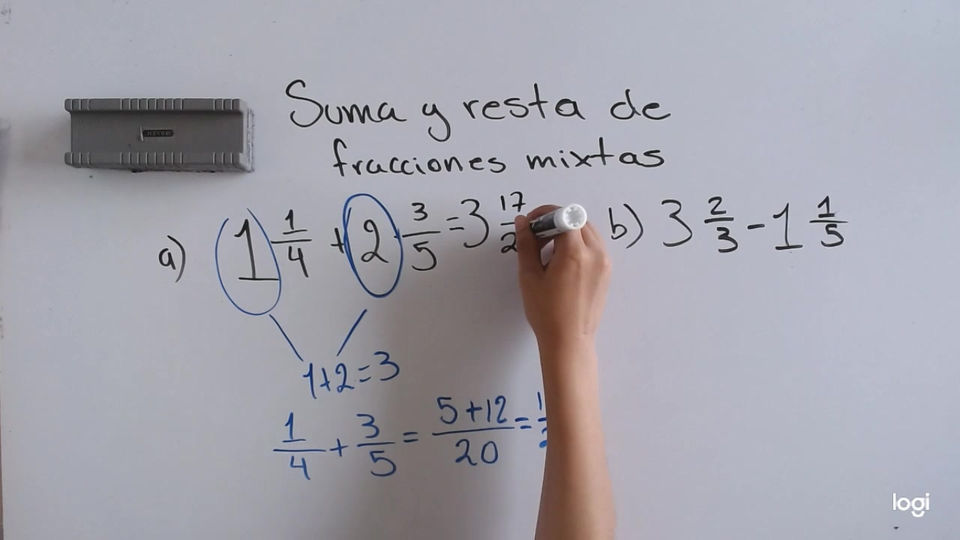 Suma y resta de
fracciones mixtas
a) 1 1/4 + 2 3/5 = 3 17/2
b) 3 2/3 - 1 1/5
1+2=3
1/4 + 3/5 = 5+12/20 =
logi